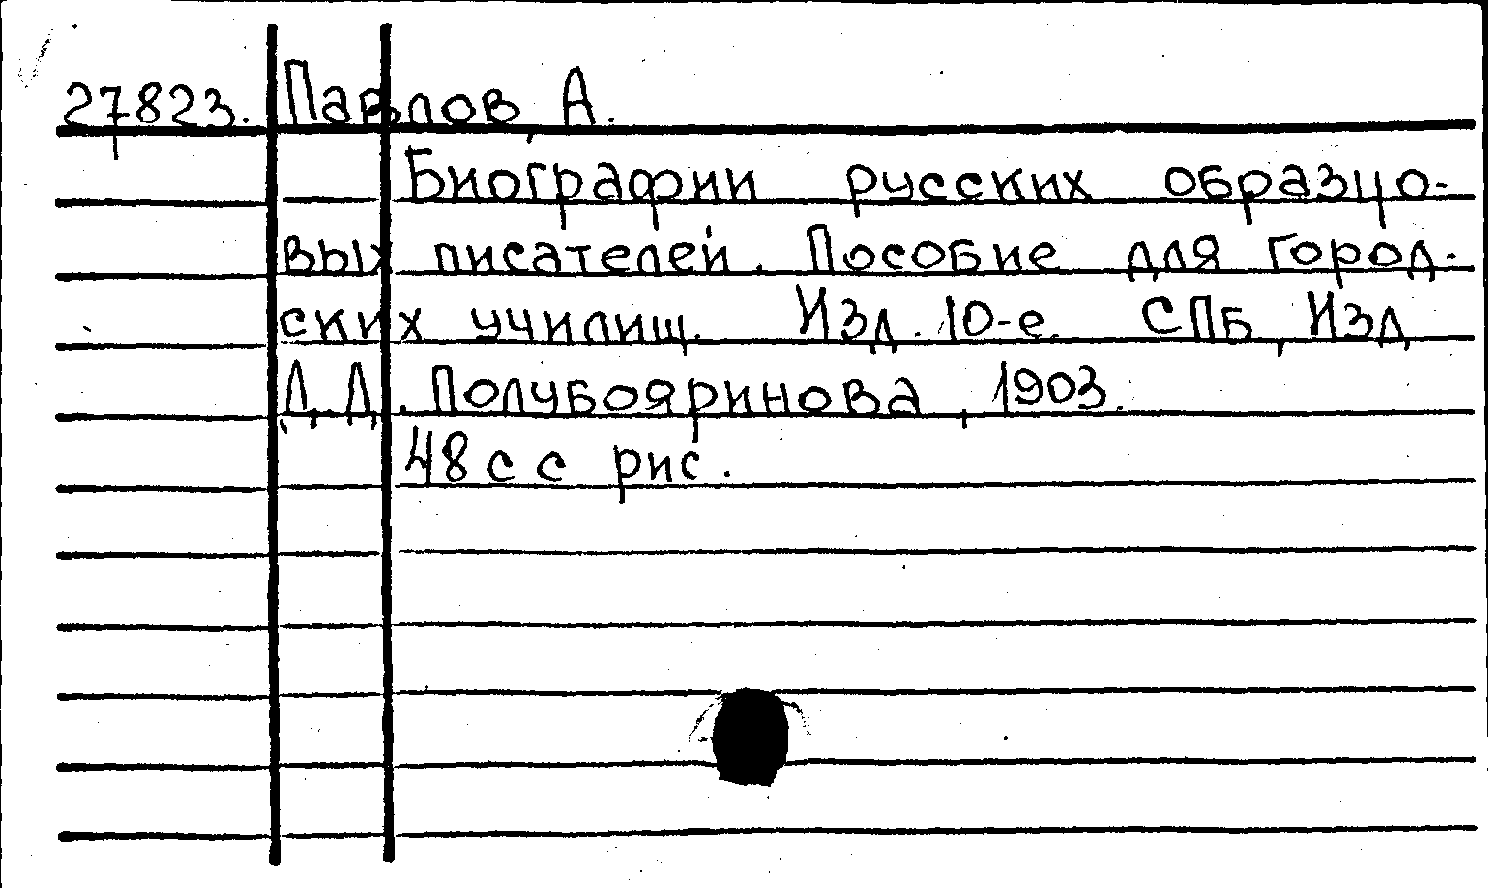 27823. Павлов, А.
Биографии русских образцо-
вых писателей. Пособие для город-
ских училищ. Изд. 10-е. СПБ, Изд
Д. Д. Полубояринова, 1903.
48 с с рис.